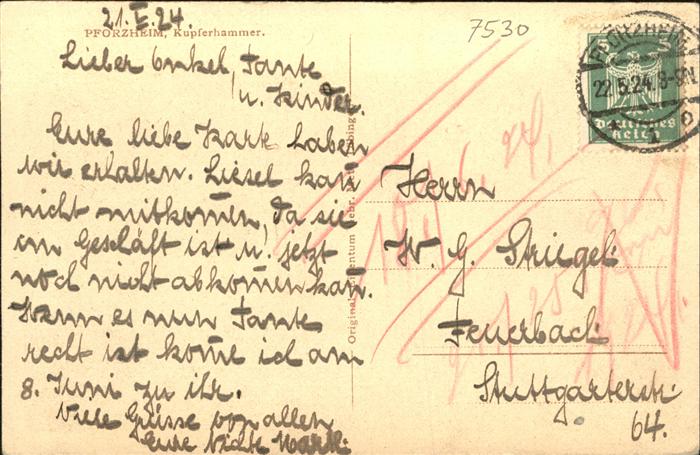 21.5.24.
PFORZHEIM, Kupferhammer.
7530
Lieber Onkel, Tante
u. Kinder.
Eure liebe Karte haben
wir erhalten. Liesel kan
nicht mitkomen, da sie
im Geschäft ist u. jetzt
noch nicht abkomen kan.
Wenn es nun Tante
recht ist kome ich am
8. Juni zu ihr.
Viele Grüsse von allen
Eure Nichte
PFORZHEIM
22.5.24. 8-9N
Deutsches
Reich
5
Herrn
W. G. Striegel
Feuerbach
Stuttgarterstr.
64.